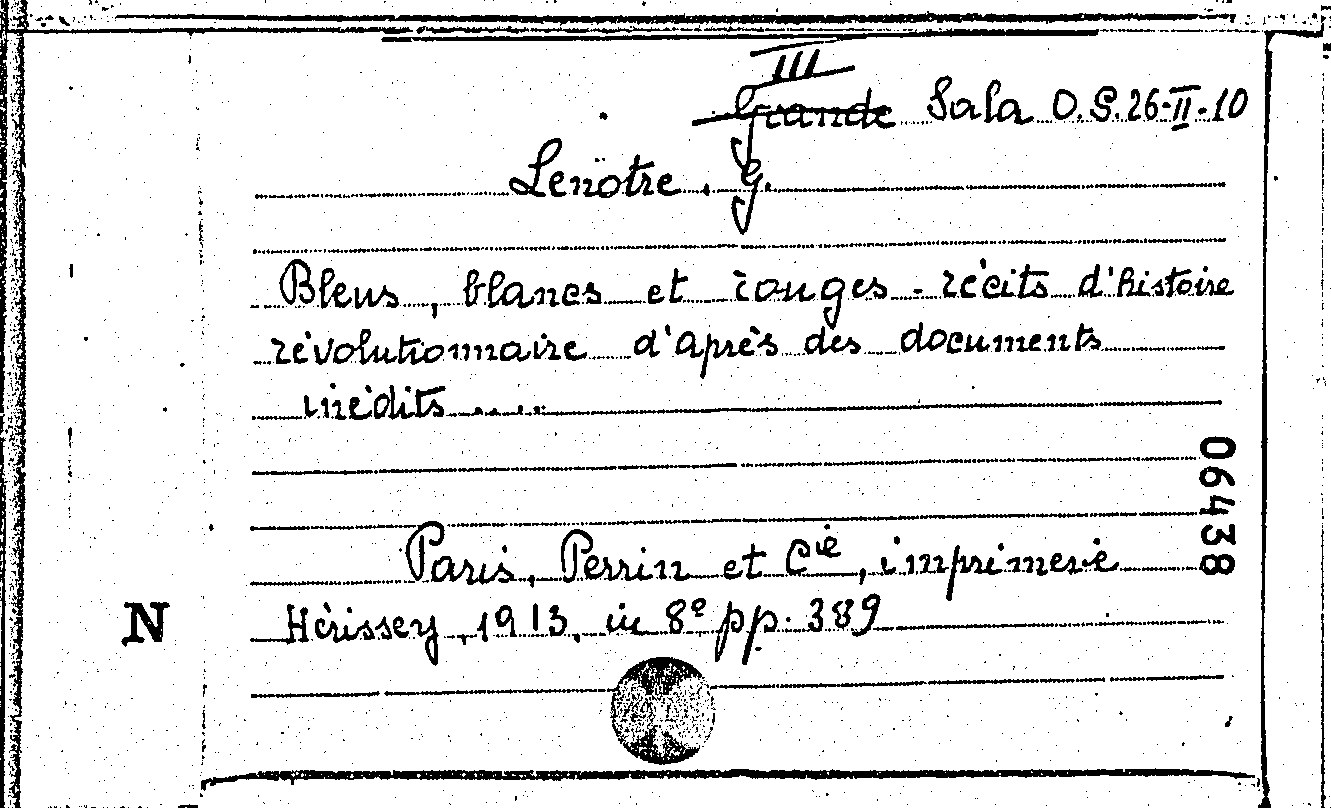 III
Grande Sala O.S. 26-II-10
Lenotre. G.
Bleus, blancs et rouges - récits d'histoire
révolutionnaire d'après des documents
inédits.....
06438
Paris, Perrin et Cie, imprimerie
Hérissey, 1913, in 8º pp. 389
N